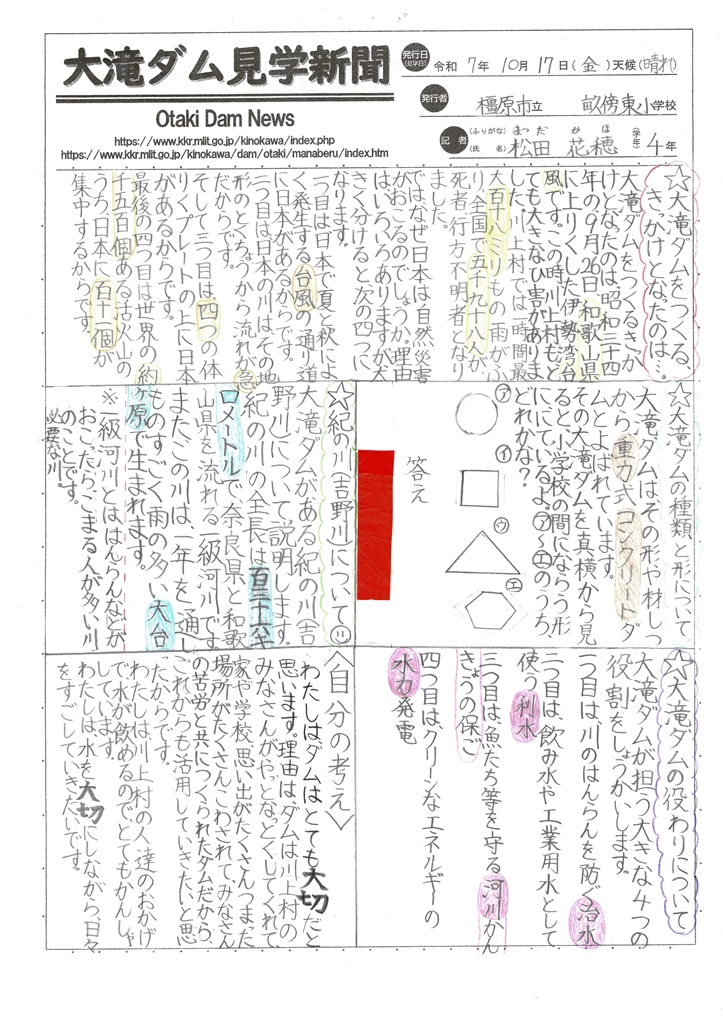 大滝ダム見学新聞
Otaki Dam News
https://www.kkr.mlit.go.jp/kinokawa/index.php
https://www.kkr.mlit.go.jp/kinokawa/dam/otaki/manaberu/index.htm
発行日(見学日) 令和 7年 10月 17日(金)天候(晴れ)
発行者 橿原市立 畝傍東小学校
記者 (ふりがな) まつだ かほ
(氏名) 松田 花穂 (学年) 4年
☆大滝ダムをつくる、
きっかけとなったのは…。
大滝ダムをつくるきっか
けとなったのは、昭和三十四
年の9月26日和歌山県
に上りくした伊勢湾台
風です。この時、川上村もと
ても大きなひ害がありま
した。川上村では、時間最
大百十八ミリもの雨がふ
り、全国で五千九十八人が
死者・行方不明者となり
ました。
では、なぜ日本は自然災害
がおこるのでしょうか。理由
はいろいろありますが、大
きく分けると次の四つに
なります。
一つ目は日本で夏と秋によ
く発生する台風の通り道
に日本があるからです。
二つ目は日本の川は、その地
形のとくちょうから流れが急
だからです。
そして三つ目は四つの体
りくプレートの上に日本
があるからです。
最後の四つ目は世界の約
千五百個ある活火山の
うち、日本に百十一個が
集中するからです。
☆大滝ダムの種類と形について
大滝ダムはその形や材しつ
から、重力式コンクリートダ
ムとよばれています。
その大滝ダムを真横から見
ると、小学校の間にならう形
ににているよ。㋐〜㋓のうち、
どれかな?
㋐
㋑
㋒
㋓
答え
☆紀の川(吉野川)について
大滝ダムがある紀の川(吉
野川)について説明します。
紀の川の全長は百三十六キ
ロメートルで、奈良県と和歌
山県を流れる一級河川です。
また、この川は、一年を通し
ものすごく雨の多い大台
ヶ原で生まれます。
※一級河川とははんらんなどが
おこったら、こまる人が多い川
のことです。
必要な川。
☆大滝ダムの役わりについて
大滝ダムが担う大きな4つの
役割をしょうかいします。
一つ目は、川のはんらんを防ぐ治水
二つ目は、飲み水や工業用水として
使う利水
三つ目は、魚たち等を守る河川かん
きょうの保ご
四つ目は、クリーンなエネルギーの
水力発電
〈自分の考え〉
わたしはダムはとても大切だと
思います。理由は、ダムは川上村の
みなさんがやっとなっとくしてくれて、
家や学校、思い出がたくさんつまった
場所がたくさんこわされて、みなさん
の苦労と共につくられたダムだから、
これからも活用していきたいと思
ったからです。
わたしは、川上村の人達のおかげ
で水が飲めるのでとてもかんしゃ
しています。
わたしは水を大切にしながら、日々
をすごしていきたいです。